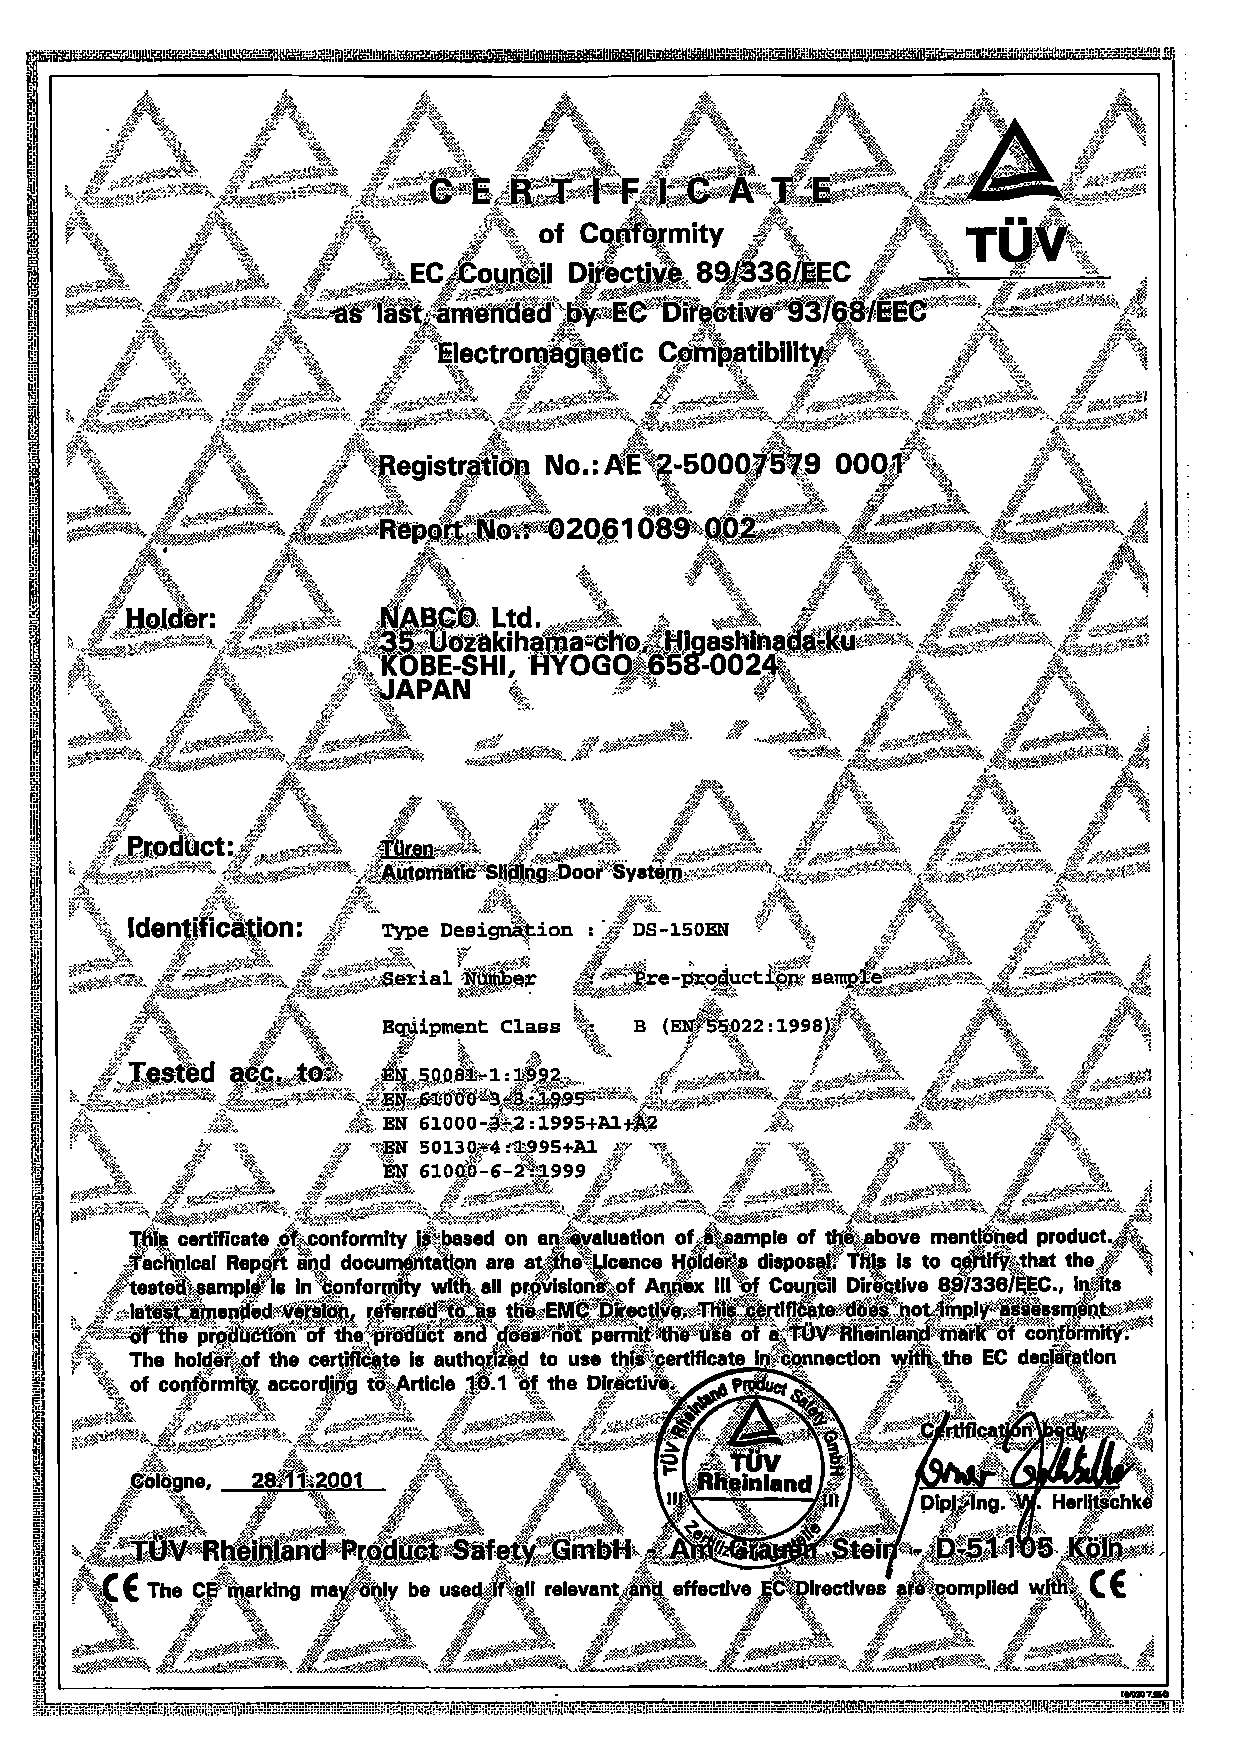 CERTIFICATE
of Conformity
EC Council Directive 89/336/EEC
as last amended by EC Directive 93/68/EEC
Electromagnetic Compatibility
TÜV
Registration No.: AE 2-50007579 0001
Report No.: 02061089 002
Holder: NABCO Ltd.
35 Uozakihama-cho, Higashinada-ku
KOBE-SHI, HYOGO 658-0024
JAPAN
Product: Türen
Automatic Sliding Door System
Identification: Type Designation : DS-150EN
Serial Number : Pre-production sample
Equipment Class : B (EN 55022:1998)
Tested acc. to: EN 50081-1:1992
EN 61000-3-3:1995
EN 61000-3-2:1995+A1+A2
EN 50130-4:1995+A1
EN 61000-6-2:1999
This certificate of conformity is based on an evaluation of a sample of the above mentioned product.
Technical Report and documentation are at the Licence Holder's disposal. This is to certify that the
tested sample is in conformity with all provisions of Annex III of Council Directive 89/336/EEC., in its
latest amended version, referred to as the EMC Directive. This certificate does not imply assessment
of the production of the product and does not permit the use of a TÜV Rheinland mark of conformity.
The holder of the certificate is authorized to use this certificate in connection with the EC declaration
of conformity according to Article 10.1 of the Directive.
TÜV Rheinland Product Safety GmbH
TÜV
Rheinland
Certification body
Cologne, 28.11.2001
Dipl.-Ing. W. Herlitschke
TÜV Rheinland Product Safety GmbH - Am Grauen Stein - D-51105 Köln
CE The CE marking may only be used if all relevant and effective EC Directives are complied with. CE